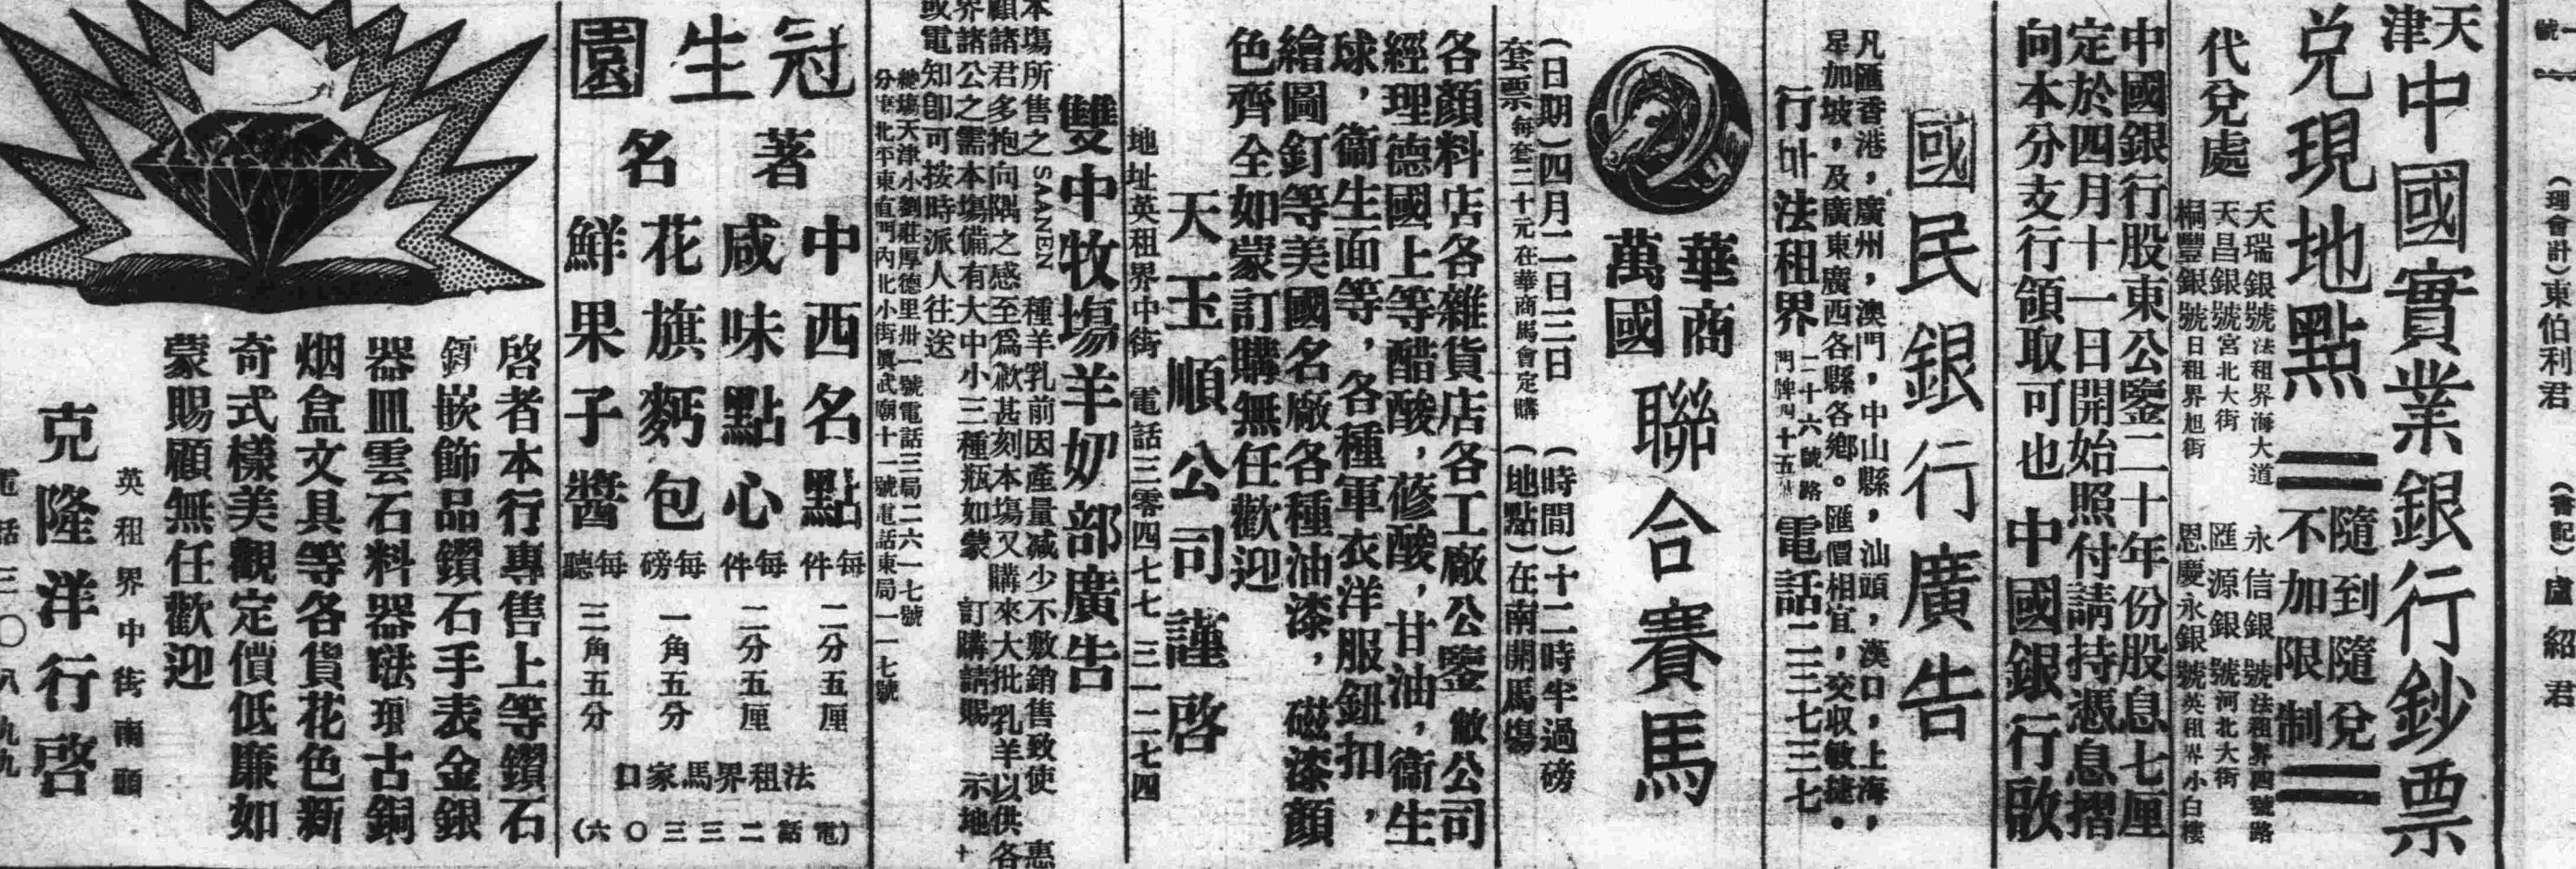 (理會計)東伯利君
盧紹君
天津
中國實業銀行鈔票
兌現地點
隨到隨兌
不加限制
代兌處
天瑞銀號 法租界海大道
天昌銀號 宮北大街
桐豐銀號 日租界旭街
永信銀號 法租界四號路
匯源銀號 河北大街
恩慶永銀號 英租界小白樓
中國銀行股東公鑒二十年份股息七厘
定於四月十一日開始照付請持憑息摺
向本分支行領取可也 中國銀行啟
國民銀行廣告
凡匯香港，廣州，澳門，中山縣，汕頭，漢口，上海，
星加坡，及廣東廣西各縣各鄉。匯價相宜，交收敏捷。
行址法租界 二十六號路 電話二三七三七
華商
萬國
聯合賽馬
(日期)四月二日三日 (時間)十二時半過磅
套票每套三十元在華商馬會定購 (地點)在南開馬塲
各顏料店各雜貨店各工廠公鑒 敝公司
經理德國上等醋酸，蓚酸，甘油，衞生
球，衞生面等，各種軍衣洋服鈕扣，
繪圖釘等美國名廠各種油漆，磁漆顏
色齊全如蒙訂購無任歡迎
天玉順公司謹啓
地址英租界中街 電話三零四七七 三一二七四
雙中牧塲羊奶部廣告
本塲所售之 SAANEN 種羊乳前因產量減少不敷銷售致使 惠
顧諸君多抱向隅之感至爲歉甚刻本塲又購來大批乳羊以供各
界諸公之需本塲備有大中小三種瓶如蒙 訂購請賜 示地
或電知卽可按時派人往送
總塲天津小劉莊厚德里卅一號電話三局二六一七號
分塲北平東直門內北小街眞武廟十一號電話東局一一七號
冠生園
著名
中西名點 每件 二分五厘
咸味點心 每件 二分五厘
花旗麪包 每磅 一角五分
鮮果子醬 每聽 三角五分
法租界馬家口
(電話二三三〇六)
啓者本行專售上等鑽石
鑲嵌飾品鑽石手表金銀
器皿雲石料器琺瑯古銅
烟盒文具等各貨花色新
奇式樣美觀定價低廉如
蒙賜顧無任歡迎
英租界中街南頭
克隆洋行啓
電話三〇八九九